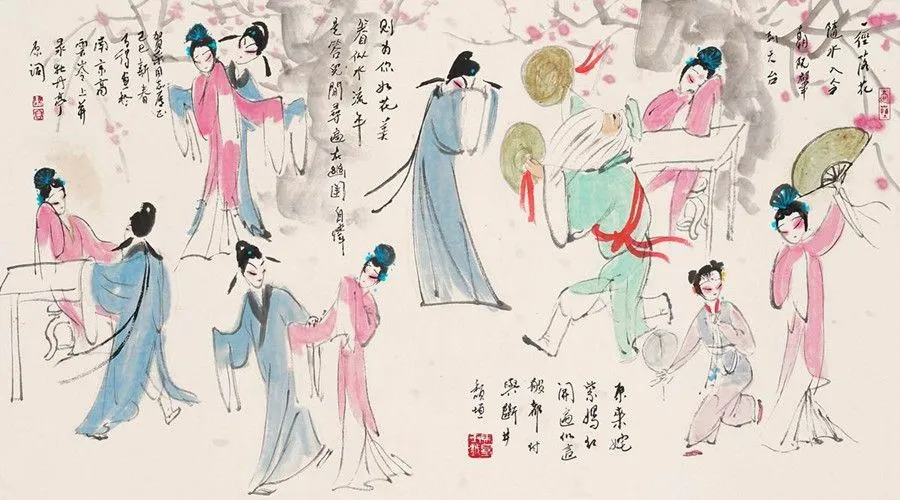 一徑落花
隨水入今
朝阮肇
到天台
則為你如花美
眷似水流年
是答兒閒尋遍在幽閨自憐
己巳新春
馬得畫於
南京高
雲岑上并
录牡丹亭
原詞
原來姹
紫嫣红
開遍似這
般都付
與斷井
頹垣